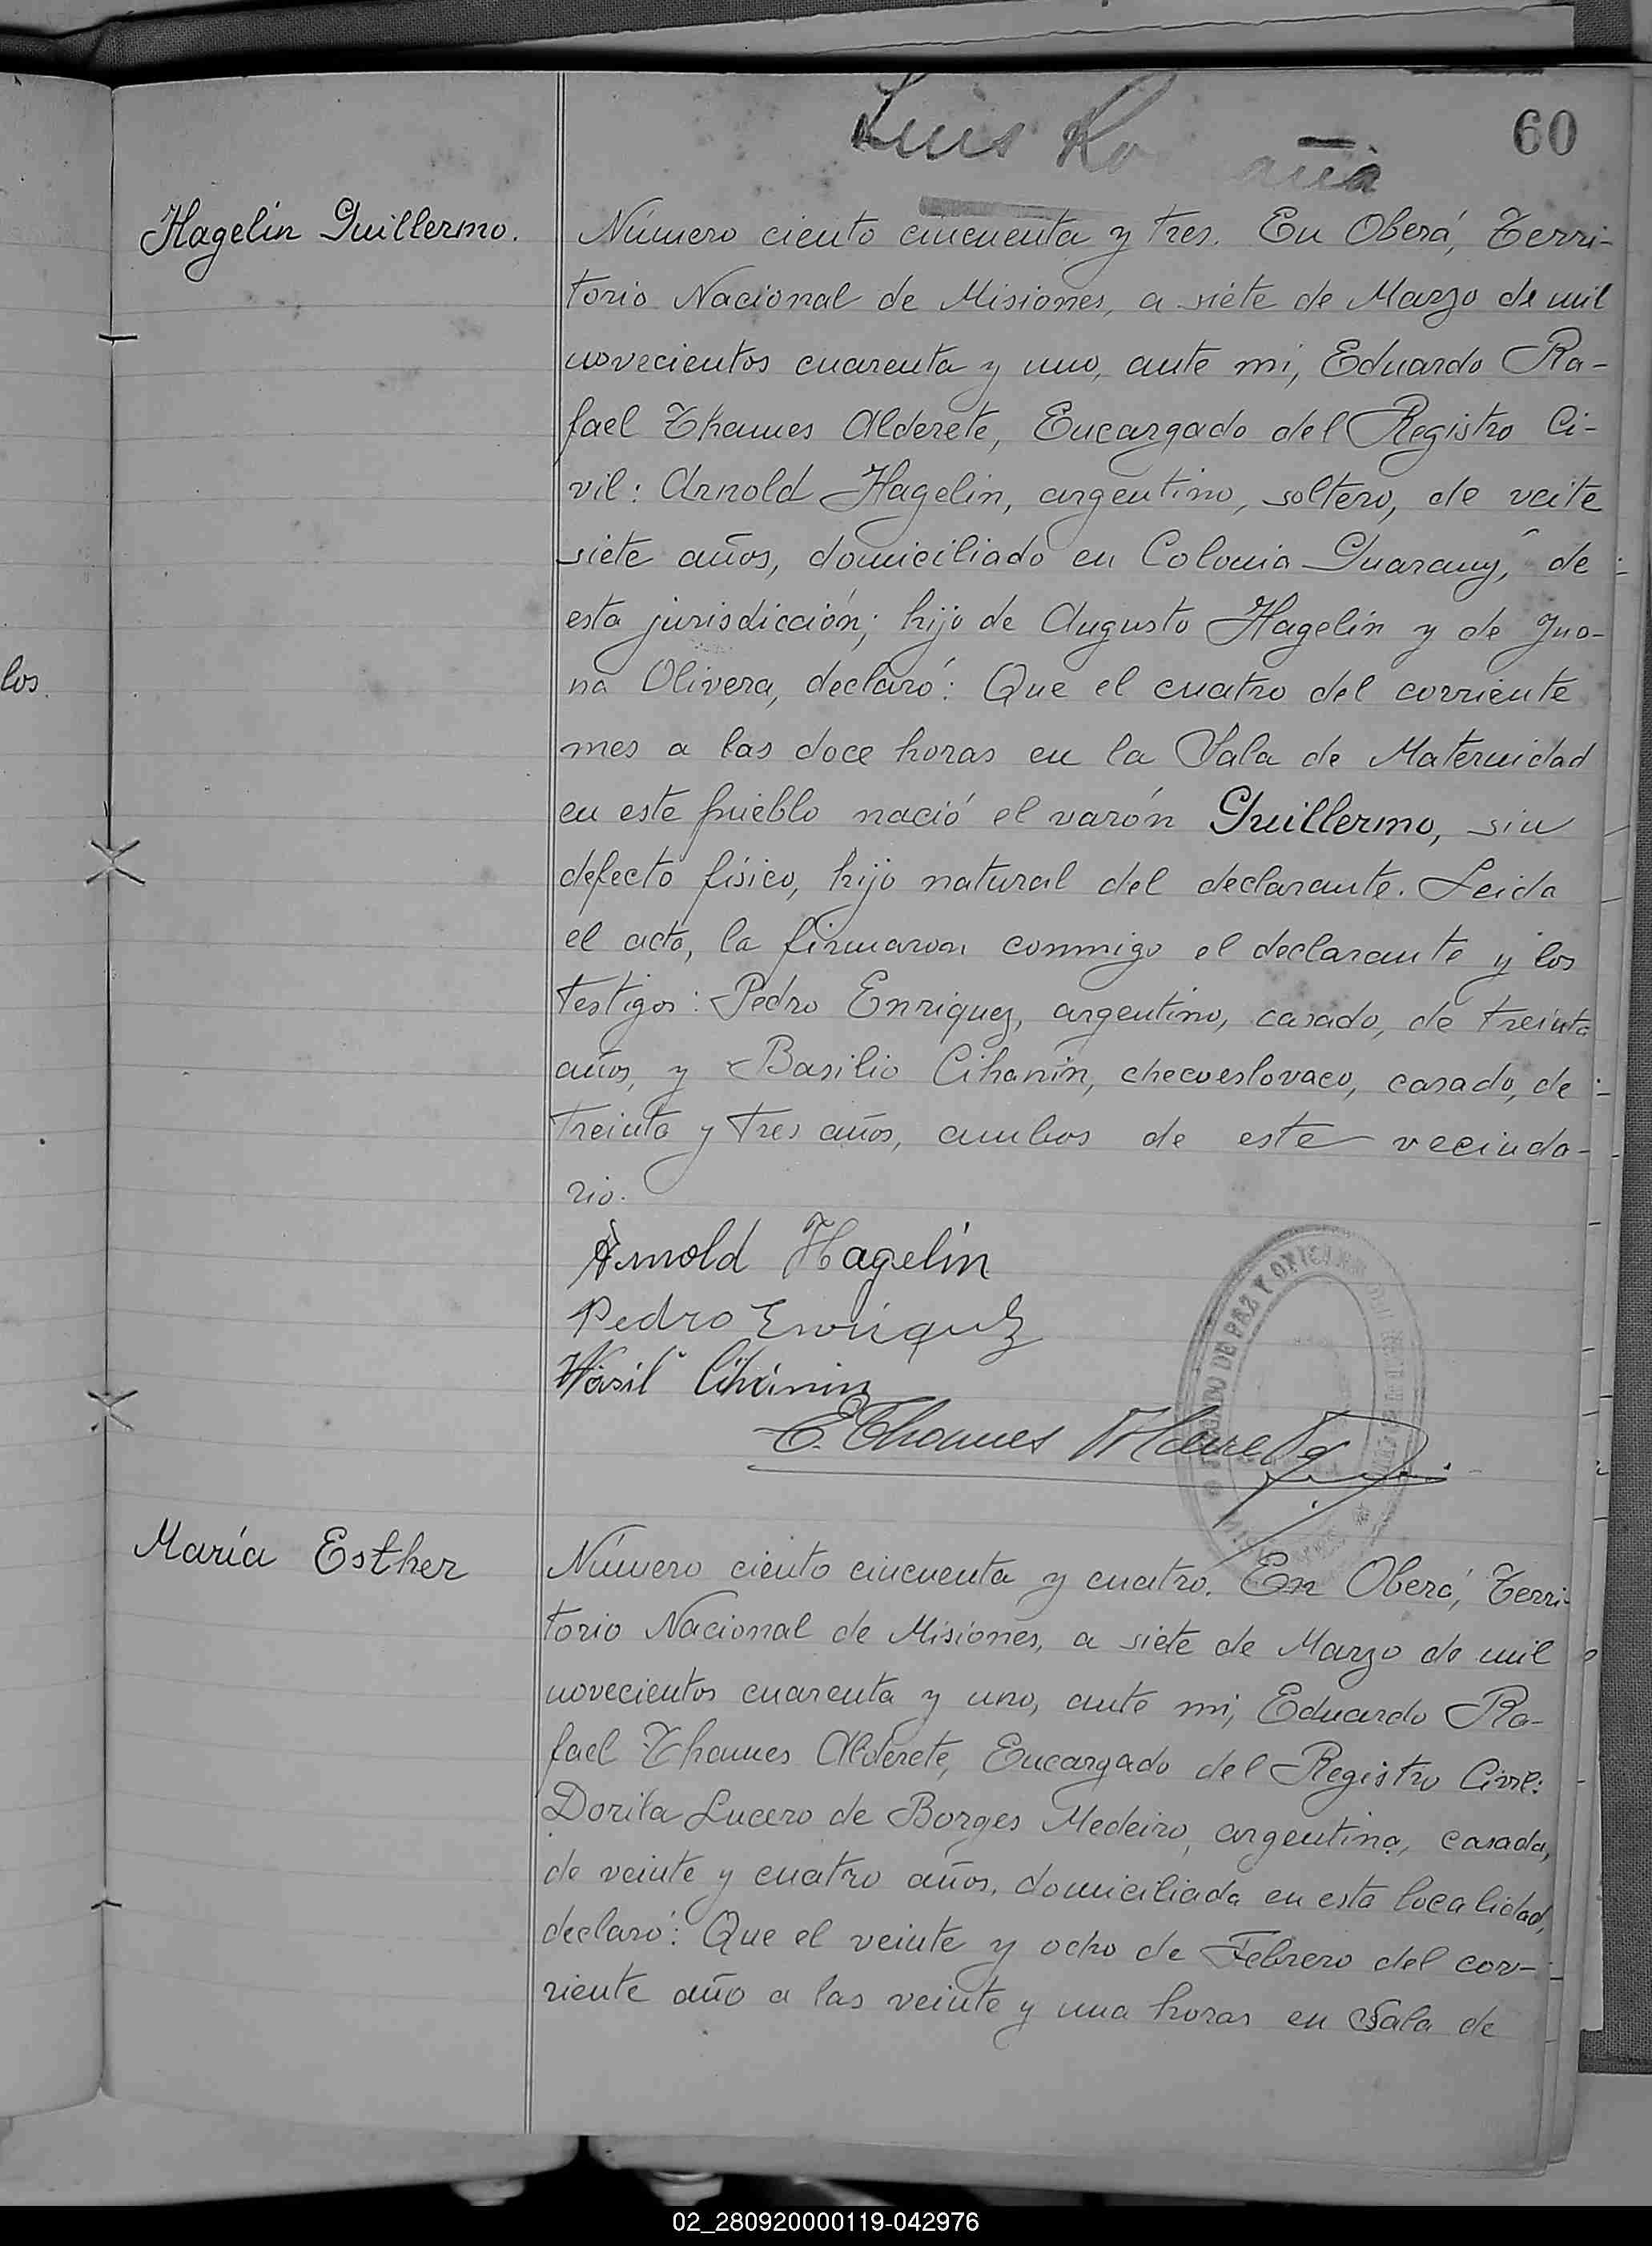 Luis
60
Hagelin Guillermo.
Número ciento cincuenta y tres. En Oberá, Terri-
torio Nacional de Misiones, a siete de Marzo de mil
novecientos cuarenta y uno, ante mi, Eduardo Ra-
fael Thames Alderete, Encargado del Registro Ci-
vil: Arnold Hagelin, argentino, soltero, de veite
siete años, domiciliado en Colonia Guarany, de
esta jurisdicción; hijo de Augusto Hagelin y de Jua-
na Olivera, declaró: Que el cuatro del corriente
mes a las doce horas en la Sala de Maternidad
en este pueblo nació el varón Guillermo, sin
defecto físico, hijo natural del declarante. Leida
el acta, la firmaron conmigo el declarante y los
testigos: Pedro Enriquez, argentino, casado, de treinta
años, y Basilio Cihanin, checoeslovaco, casado, de
treinta y tres años, ambos de este vecinda-
rio.
los.
Arnold Hagelin
Pedro Enriquez
Wasil Cihánin
E. Thames Alderete
JUZGADO DE PAZ Y OFICINA DEL REGISTRO CIVIL
María Esther
Número ciento cincuenta y cuatro. En Oberá, Terri-
torio Nacional de Misiones, a siete de Marzo de mil
novecientos cuarenta y uno, ante mi, Eduardo Ra-
fael Thames Alderete, Encargado del Registro Civil:
Dorila Lucero de Borges Medeiro, argentina, casada,
de veinte y cuatro años, domiciliada en esta localidad,
declaró: Que el veinte y ocho de Febrero del cor-
riente año a las veinte y una horas en Sala de
02_280920000119-042976